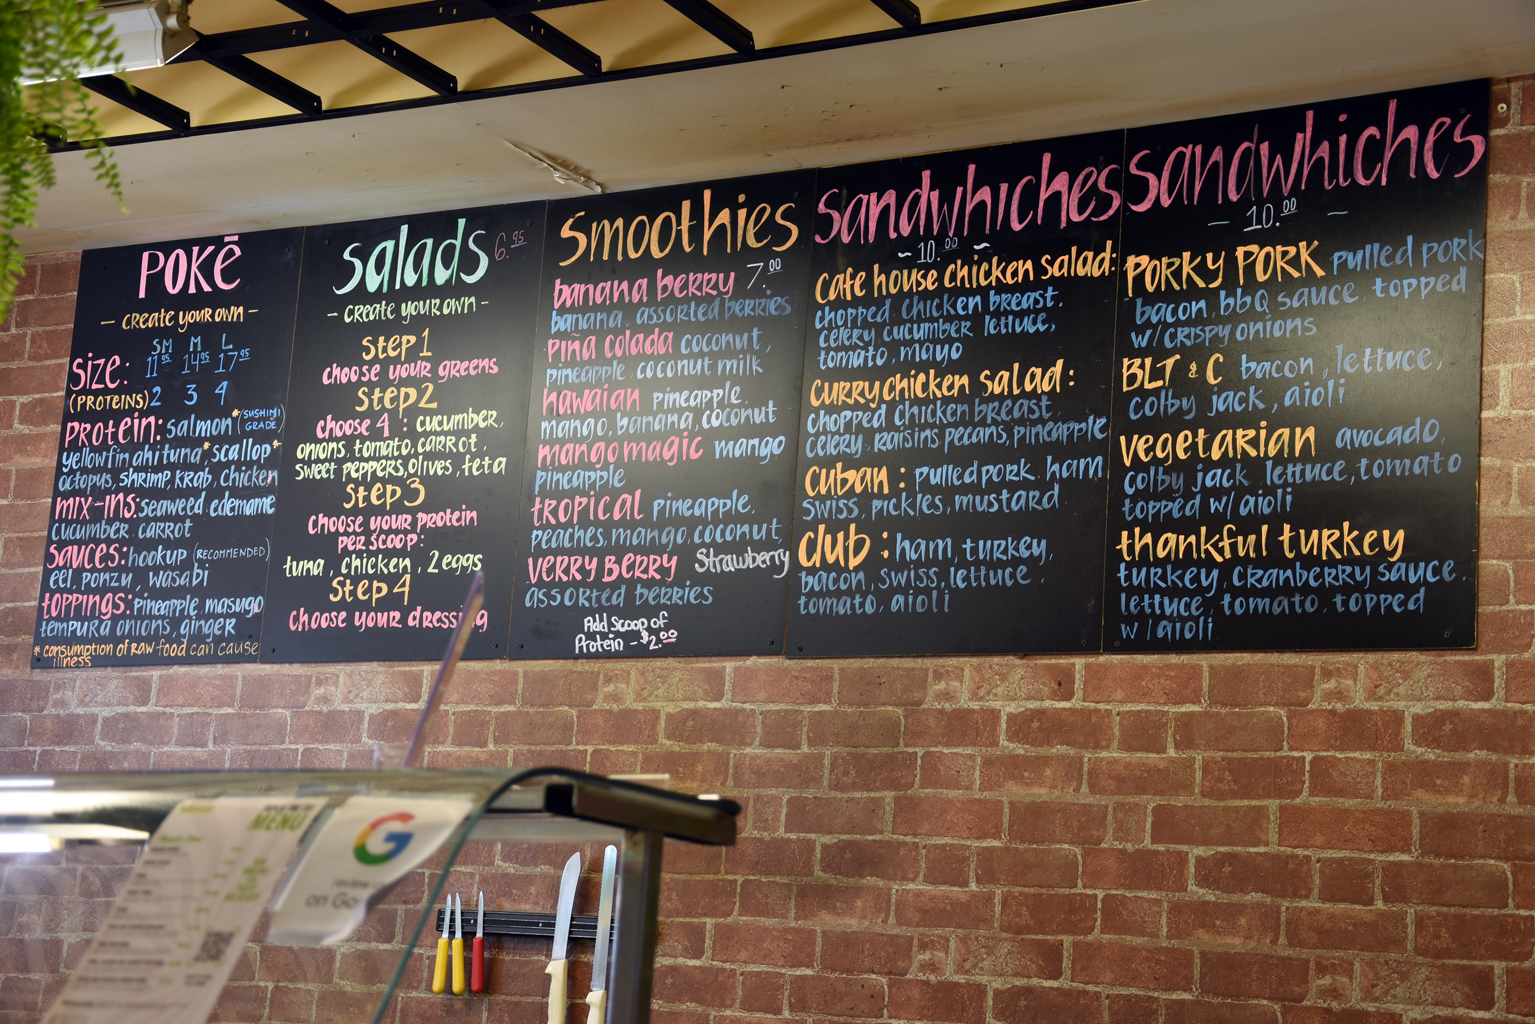 POKĒ
- create your own -
SIZE: SM M L
11.95 14.95 17.95
(PROTEINS) 2 3 4
PROTEIN: salmon* (SUSHIMI GRADE)
yellowfin ahi tuna* scallop*
octopus, shrimp, krab, chicken
MIX-INS: seaweed edemame
cucumber carrot
SAUCES: hookup (RECOMMENDED)
eel, ponzu, wasabi
TOPPINGS: pineapple, masugo
tempura onions, ginger
* consumption of raw food can cause
illness
Salads 6.95
- create your own -
Step 1
choose your greens
Step 2
choose 4 : cucumber,
onions, tomato, carrot,
sweet peppers, olives, feta
Step 3
Choose your protein
per scoop:
tuna, chicken, 2 eggs
Step 4
Choose your dressing
Smoothies
banana berry 7.00
banana, assorted berries
piña colada coconut,
pineapple, coconut milk
hawaiian pineapple,
mango, banana, coconut
mango magic mango
pineapple
tropical pineapple,
peaches, mango, coconut,
VERRY BERRY Strawberry
assorted berries
Add Scoop of
Protein - $2.00
Sandwhiches
~ 10.00 ~
Cafe house chicken salad:
chopped chicken breast,
celery cucumber lettuce,
tomato, mayo
Curry chicken salad:
chopped chicken breast
celery, raisins pecans, pineapple
Cuban: pulled pork, ham
swiss, pickles, mustard
Club: ham, turkey,
bacon, swiss, lettuce,
tomato, aioli
Sandwhiches
- 10.00 -
PORKY PORK pulled pork
bacon, bbq sauce topped
w/ crispy onions
BLT & C bacon, lettuce,
colby jack, aioli
vegetarian avocado,
colby jack lettuce, tomato
topped w/ aioli
thankful turkey
turkey, cranberry sauce,
lettuce, tomato, topped
w/ aioli
MENU
G
review
on Go